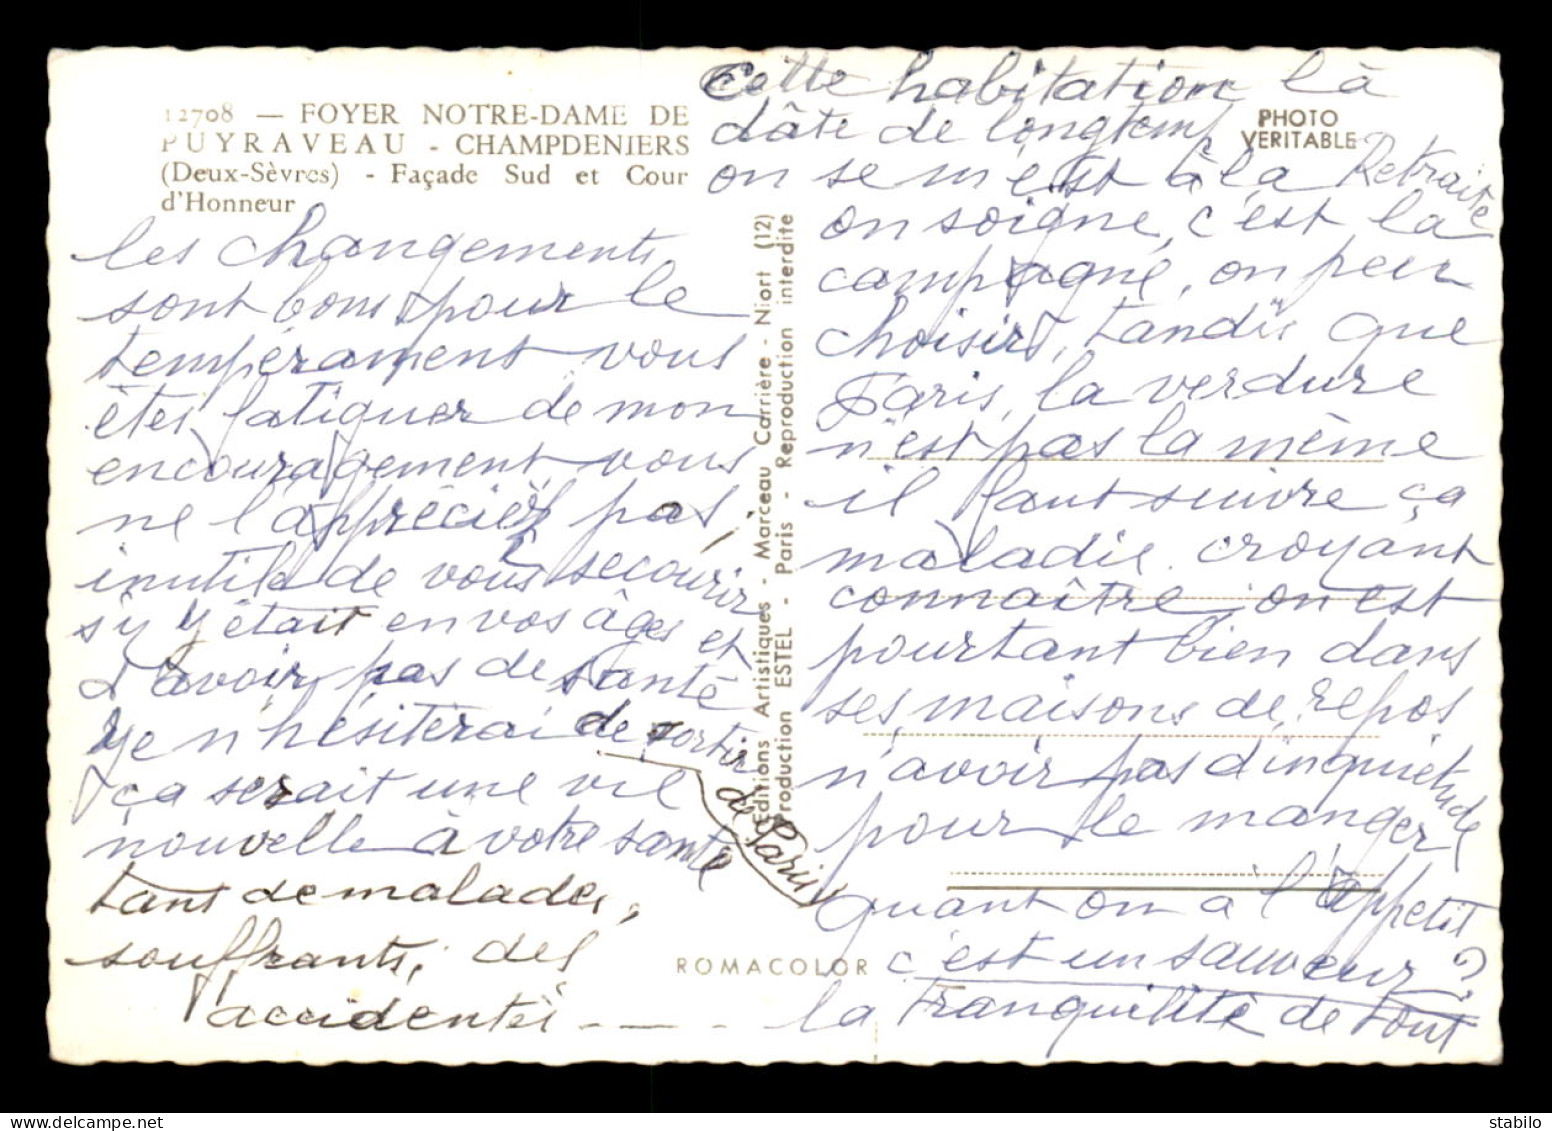 12708 — FOYER NOTRE-DAME DE
PUYRAVEAU - CHAMPDENIERS
(Deux-Sèvres) - Façade Sud et Cour
d'Honneur
les changements
sont bons pour le
tempérament vous
êtes fatiguer de mon
encouragement, vous
ne l'appréciez pas,
inutile de vous secourir
s'y j'étais en vos âges et
d'avoir pas de santé
je n'hésiterai de sortir
de Paris
ça serait une vie
nouvelle à votre santé
tant de malades,
souffrants, des
accidentés - - -
Editions Artistiques - Marceau Carrière - Niort (12)
Production ESTEL - Paris - Reproduction interdite
ROMACOLOR
PHOTO
VERITABLE
Cette habitation là
dâte de longtemp
on se m'est à la Retraite
on soigne, c'est la
campagne, on peu
choisird, tandis que
Paris, la verdure
n'est pas la même
il faut suivre ça
maladie. croyant
connaître, on est
pourtant bien dans
ses, maisons de, repos
n'avoir pas d'inquiétude
pour le manger
quant on a l'appetit
c'est un sauveur ?
la tranquilité de tout